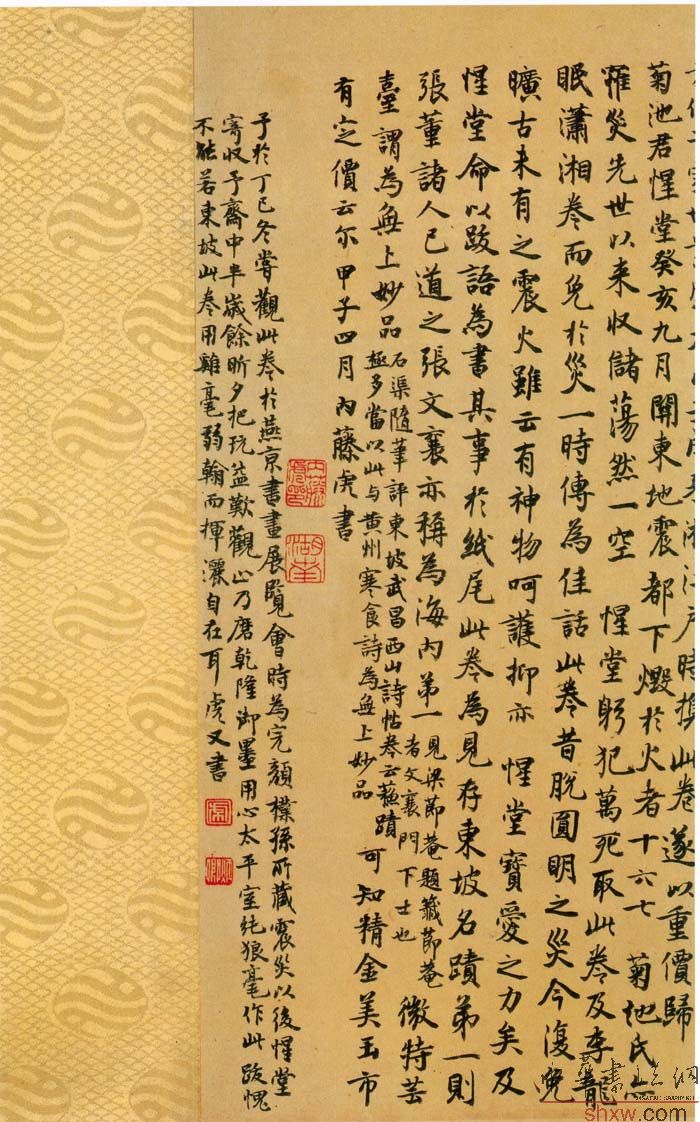 江戶時攜此卷遂以重價歸
菊池君惺堂癸亥九月關東地震都下燬於火者十六七菊池氏亦
罹災先世以来收儲蕩然一空惺堂躬犯萬死取此卷及李龍
眠瀟湘卷而免於災一時傳為佳話此卷昔脫圓明之災今復免
曠古未有之震火雖云有神物呵護抑亦惺堂寶愛之力矣及
惺堂命以跋語為書其事於紙尾此卷為見存東坡名蹟第一則
張董諸人已道之張文襄亦稱為海內第一見梁節菴題籤節菴者文襄門下士也微特芸
臺謂為無上妙品石渠隨筆評東坡武昌西山詩帖卷云蘇蹟極多當以此与黄州寒食詩為無上妙品可知精金美玉市
有定價云尔甲子四月內藤虎書
內藤虎印
湖南
予於丁巳冬嘗觀此卷於燕京書畫展覽會時為完顏樸孫所藏震災以後惺堂
寄收予齋中半歲餘昕夕把玩益歎觀止乃磨乾隆御墨用心太平室純狼毫作此跋愧
不能若東坡此卷用雞毫弱翰而揮灑自在耳虎又書
shxw.com